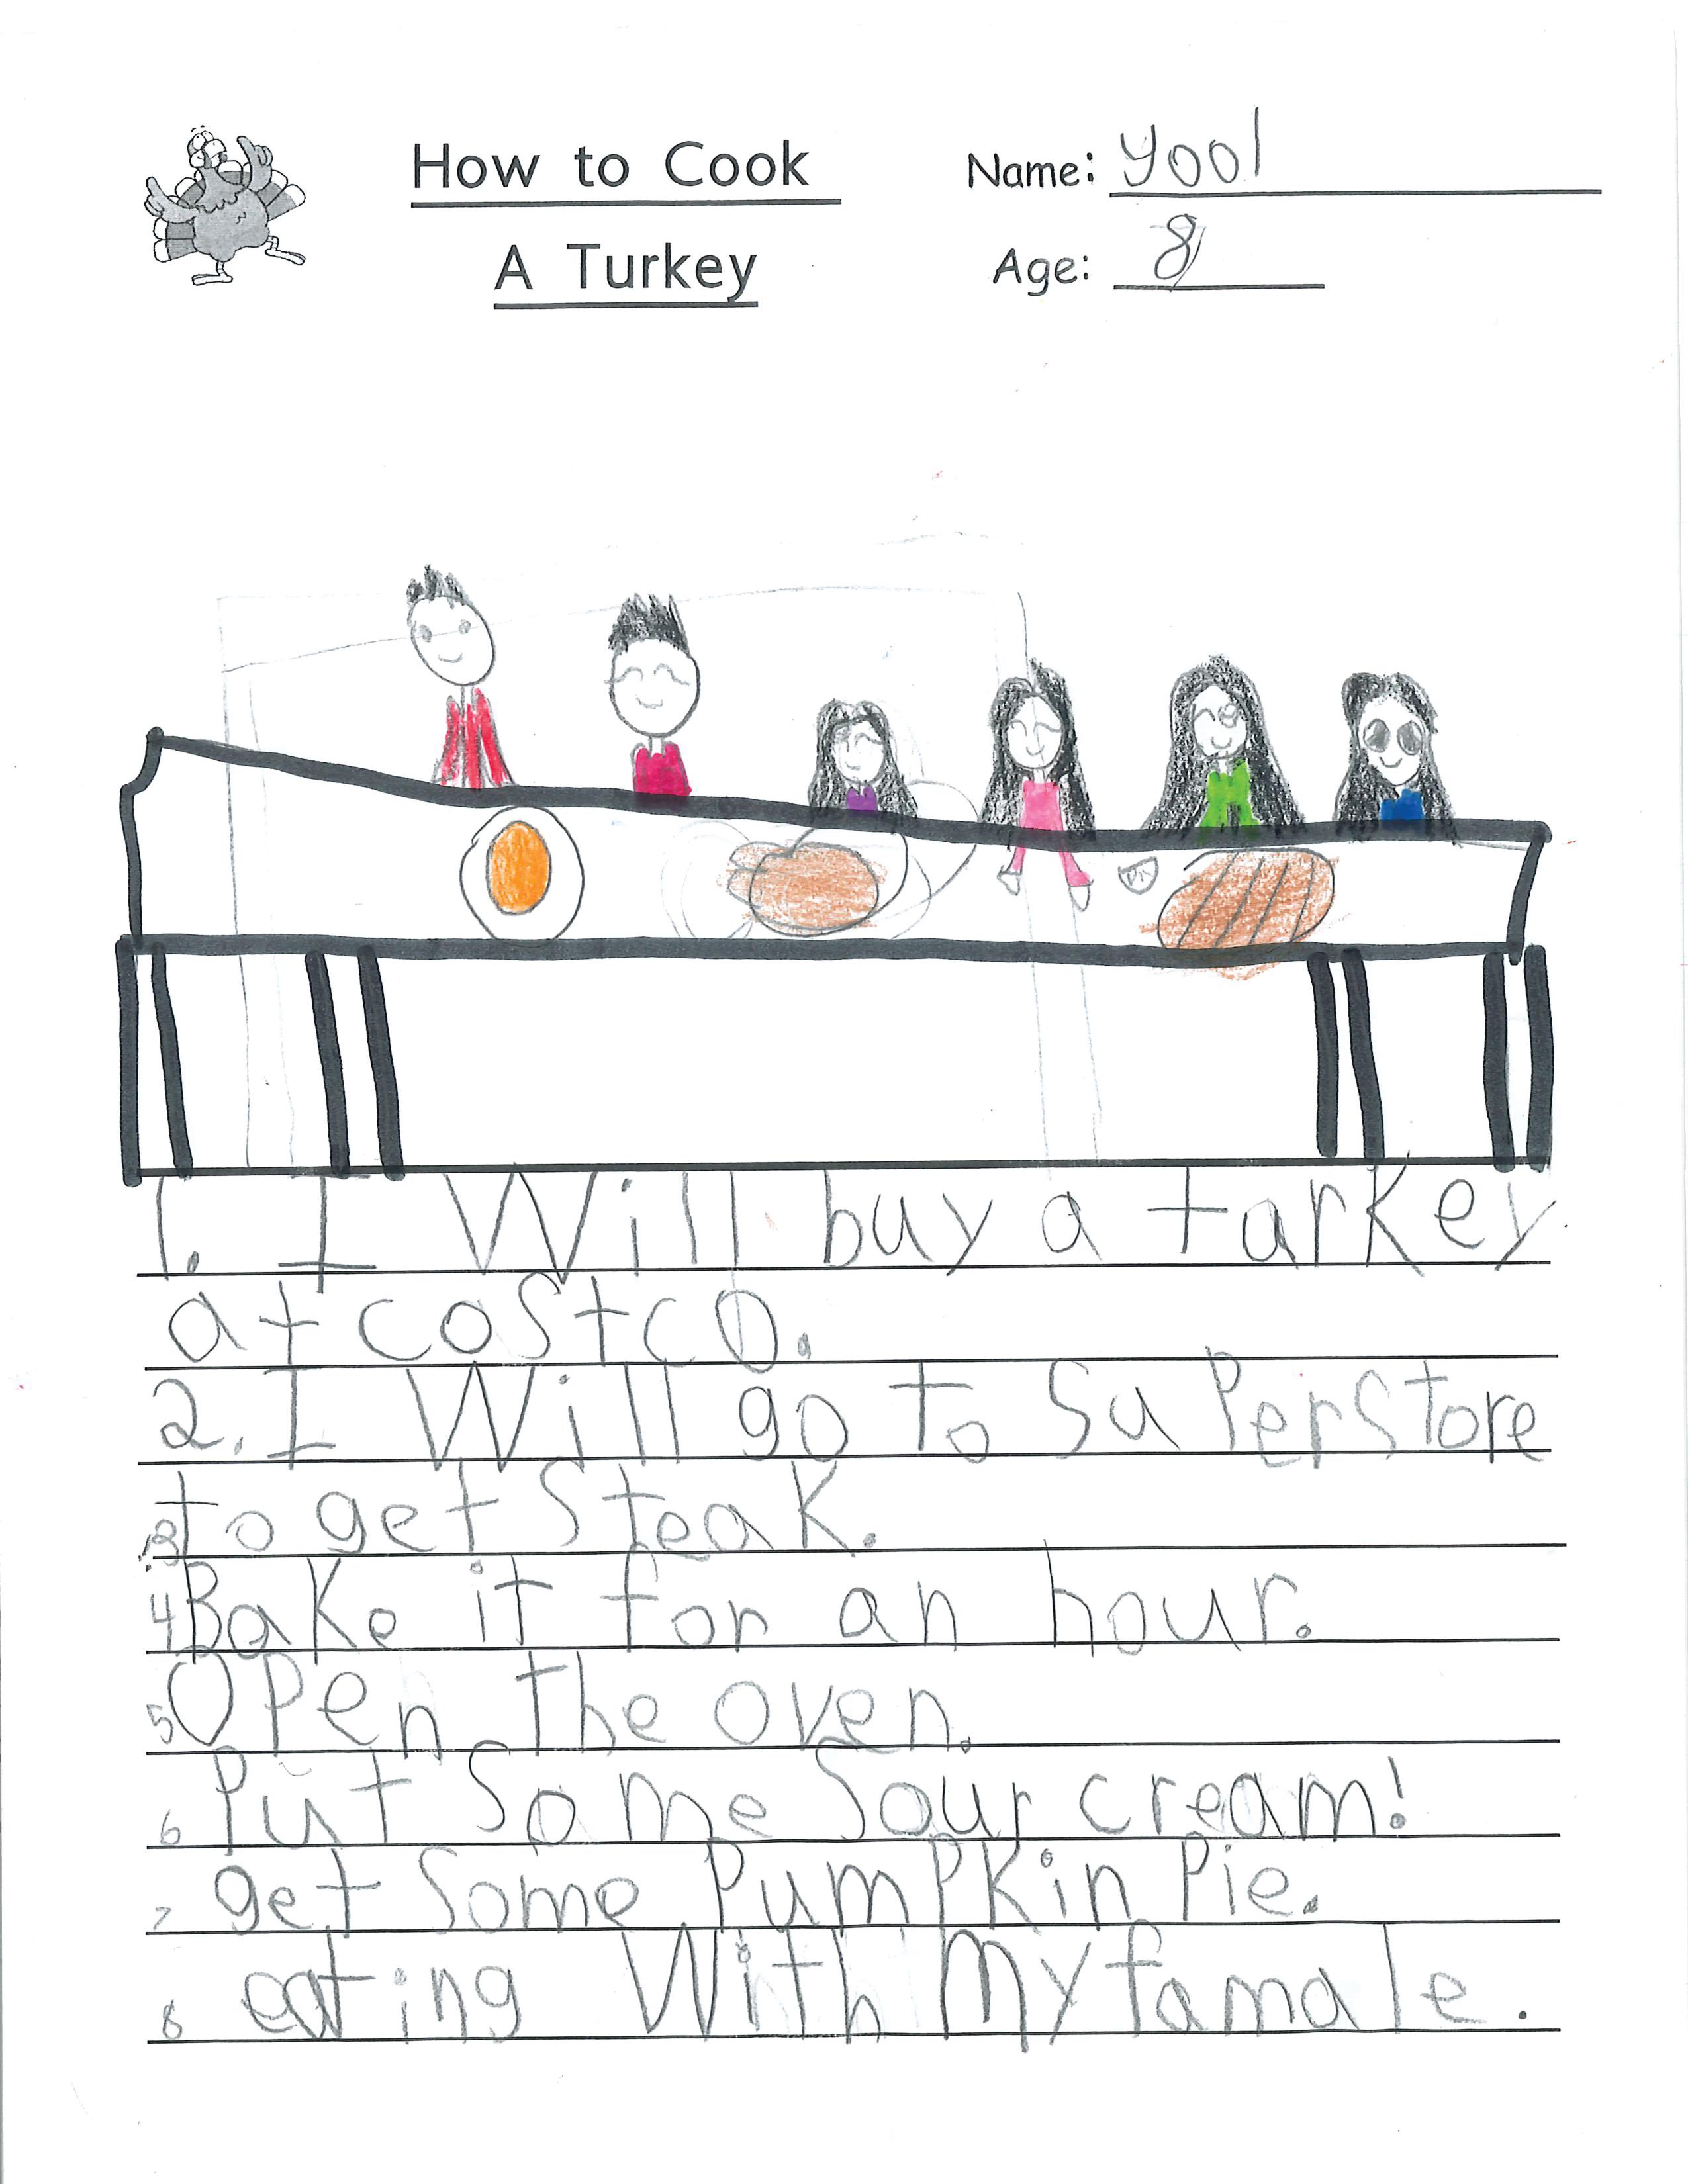 How to Cook
A Turkey
Name: Yool
Age: 8
1. I Will buy a tarkey
at costco.
2. I Will go to SuPerstore
3 to get Steak.
4 Bake it for an hour.
5 OPen the oven.
6 Put Some Sour cream!
7 get Some PumPkin Pie.
8 eating With My famale.